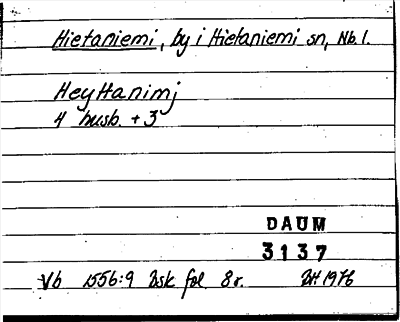 Hietaniemi, by i Hietaniemi sn, Nb. l.
HeyHanimj
4 husb. + 3
DAUM
3137
Vb 1556:9 Bsk fol 8 r. BH 1976